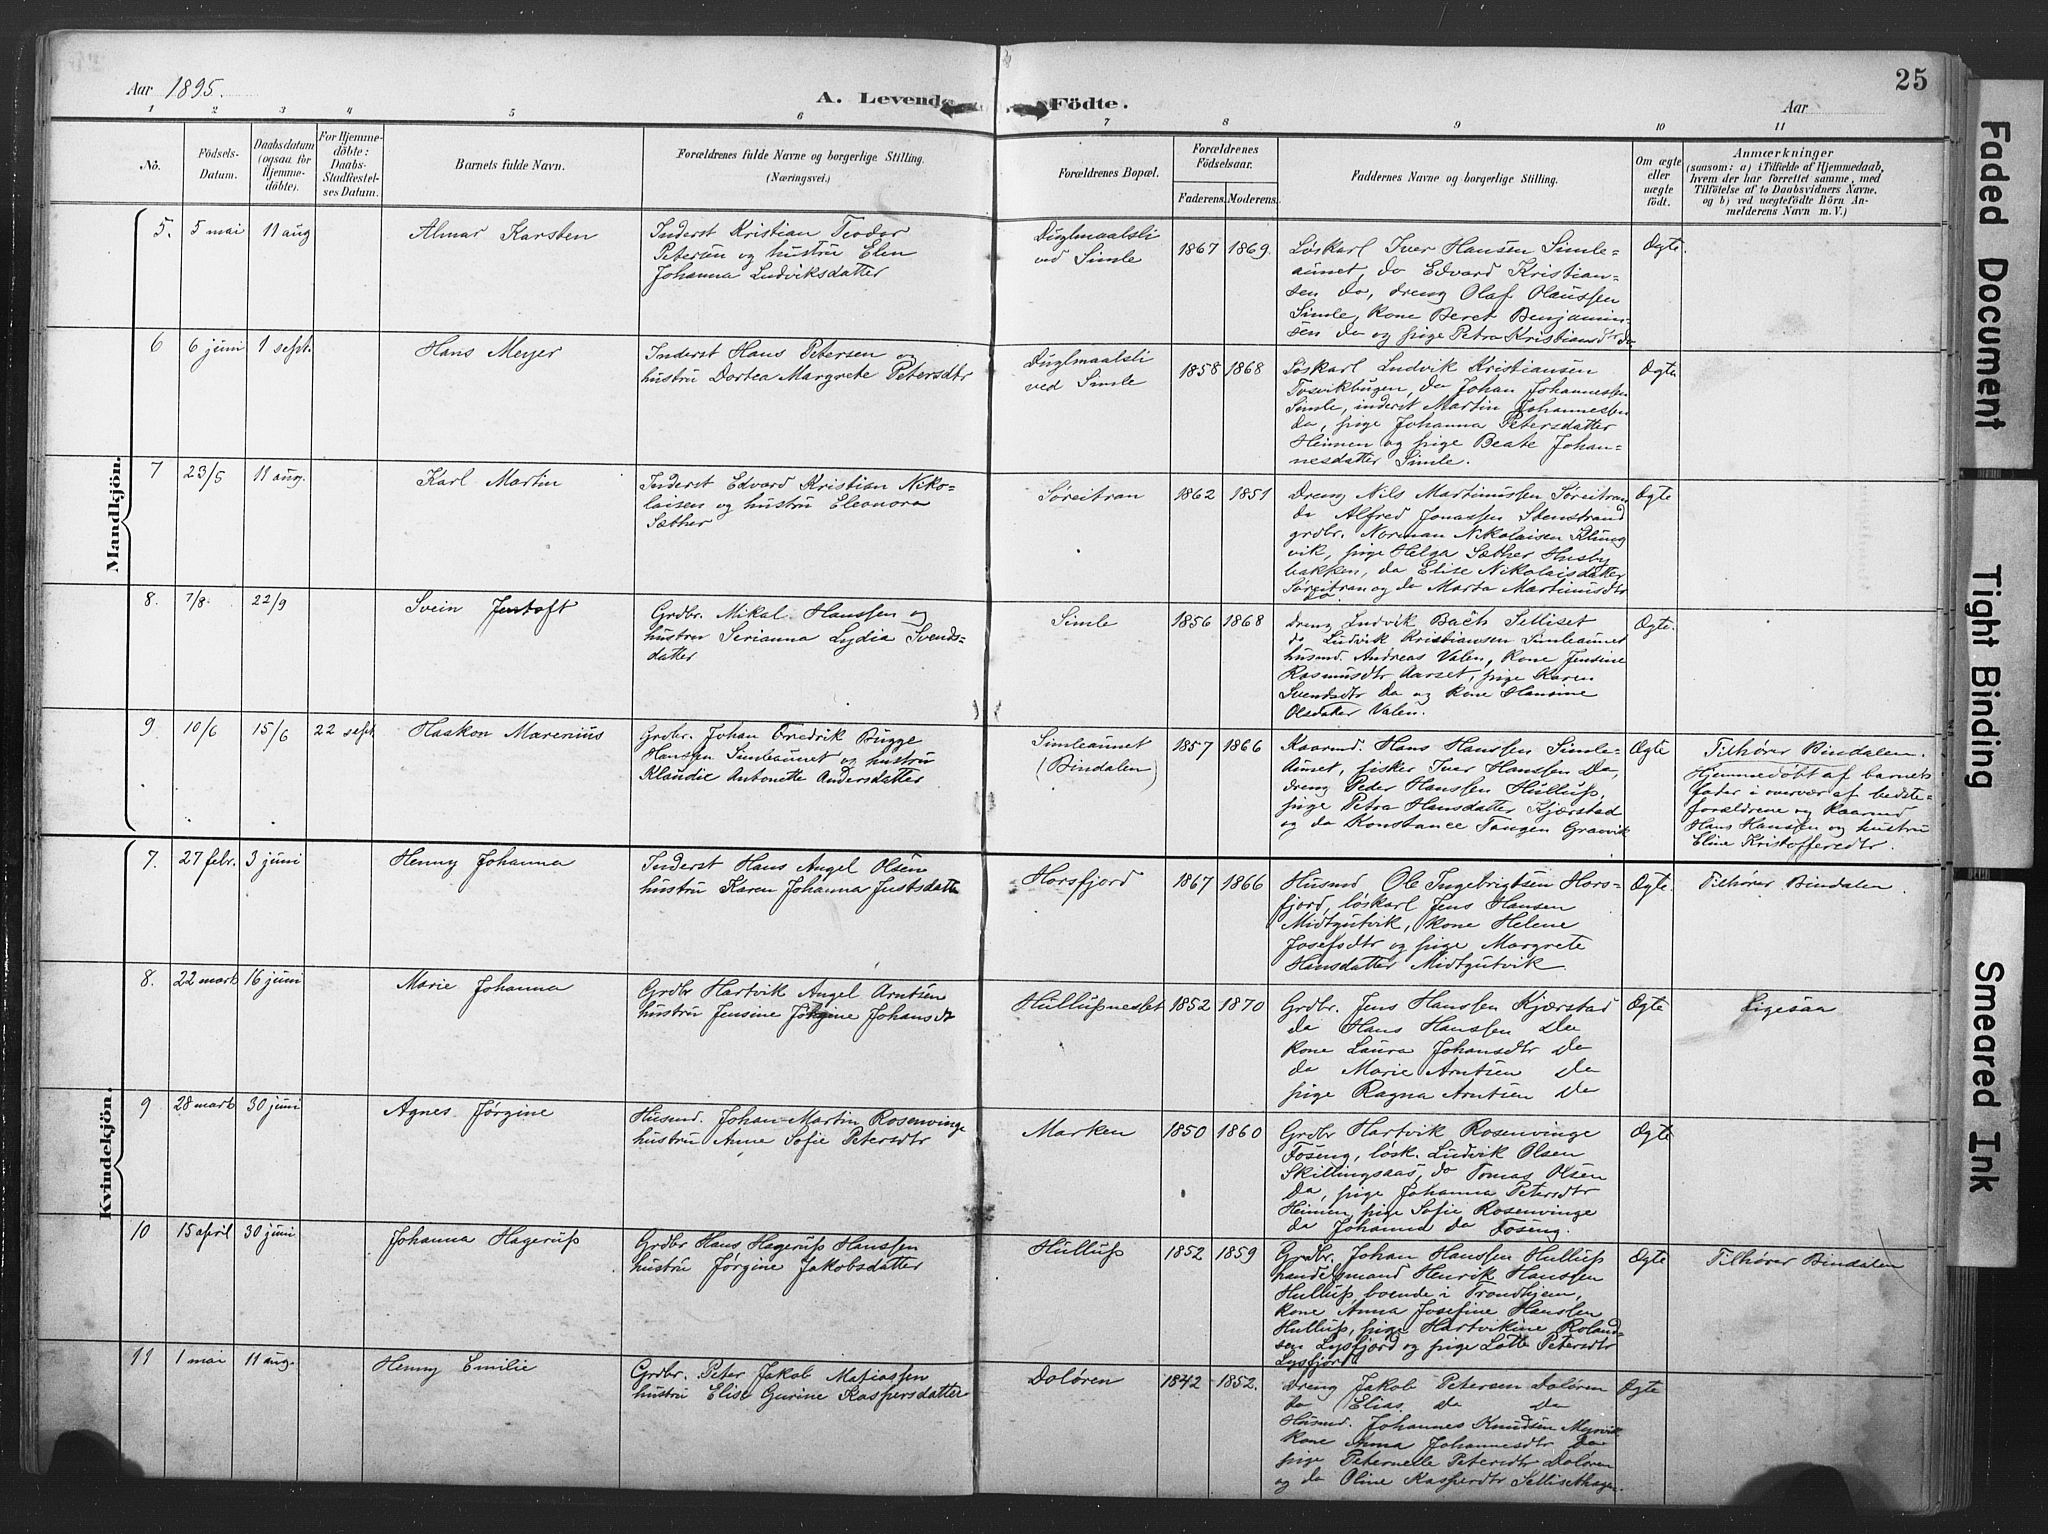 25
Aar 1895.
A. Levende Födte.
Aar
1 2 3 4 5 6 7 8 9 10 11
No.
Födsels-Datum.
Daabsdatum (ogsaa for Hjemmedöbte).
For Hjemmedöbte: Daabs-Stadfæstelses Datum.
Barnets fulde Navn.
Forældrenes fulde Navne og borgerlige Stilling.
(Næringsvei.)
Forældrenes Bopæl.
Forældrenes Födselsaar.
Faderens. Moderens.
Faddernes Navne og borgerlige Stilling.
Om ægte eller uægte födt.
Anmærkninger
(saasom: a) i Tilfælde af Hjemmedaab, hvem der har forrettet samme, med Tilföielse af to Daabsvidners Navne, og b) ved uægtefödte Börn Anmelderens Navn m. V.)
Mandkjön.
5. 5 mai 11 aug Almar Karsten
Inderst Kristian Teodor
Petersen og hustru Elen
Johanna Ludviksdatter
Duglmaalsli
ved Simle
1867 1869.
Løskarl Iver Hansen Simle-
aunet, do Edvard Kristian-
sen do, dreng Olaf Olaussen
Simle, kone Beret Benjamin-
sen do og pige Petra Kristiansdtr do
Ægte.
6 6 juni 1 sept. Hans Meyer
Inderst Hans Petersen og
hustru Dortea Margrete Petersdtr
Duglmaalsli
ved Simle
1858 1868
Løskarl Ludvik Kristiansen
Tosvikbugen, do Johan Johannessen
Simle, inderst Martin Johannessen
do, pige Johanna Petersdatter
Heimen og pige Beate Johan-
nesdatter Simle.
Ægte
7 23/5 11 aug. Karl Martin
Inderst Edvard Kristian Niko-
laisen og hustru Eleonora
Sæther
Søreitran
1862 1851
Dreng Nils Martinussen Søreitran
do Alfred Jonassen Stenstrand
grdbr. Norman Nikolaisen Kling
vik, pige Helga Sæther Husby
bakken, do Elise Nikolaisdatter
Søreitran og do Marta Martinusdtr
do.
Ægte
8. 7/8. 22/9 Svein Justoft
Grdbr. Mikal Hanssen og
hustru Serianna Lydia Svends-
datter
Simle
1856 1868
Dreng Ludvik Bach Selliset
do Ludvik Kristiansen Simleaunet
husmd. Andreas Valen, kone Jensine
Rasmusdtr Aarset, pige Karen
Svendsdtr do og kone Hansine
Olsdatter Valen.
Ægte.
9. 10/6 15/6 22 sept Haakon Marenius
Grdbr. Johan Fredrik Bugge
Hanssen Simleaunet og hustru
Klaudie Antonette Andersdatter
Simleaunet
(Bindalen)
1857 1866
Kaarmd. Hans Hanssen Simle-
Aunet, fisker Iver Hanssen Do,
dreng Peder Hanssen Hulluss,
pige Petra Hansdatter Kjærstad
og do Konstance Tangen Gravik
Ægte
Tilhører Bindalen.
Hjemmedøbt af barnets
fader i overvær af bedste-
forældrene og Kaarmd
Hans Hanssen og hustru
Eline Kristoffersdtr.
Kvindekjön.
7. 27 febr. 3 juni Henny Johanna
Inderst Hans Angel Olsen
hustru Karen Johanna Justsdatter
Horsfjord
1867 1866
Husmd Ole Ingebrigtsen Hors-
fjord, løskarl Jens Hansen
Midtgutvik, kone Helene
Josefsdtr og pige Margrete
Hansdatter Midtgutvik.
Ægte.
Tilhører Bindalen.
8. 22 marts 16 juni Marie Johanna
Grdbr Hartvik Angel Arntsen
hustru Jensine Jørgine Johansdtr
Hullussneset
1852 1870
Grdbr. Jens Hanssen Kjærstad
do Hans Hanssen Do
kone Laura Johansdtr Do
do Marie Arntsen Do
pige Ragna Arntsen Do
Ægte
Ligesaa
9 28 marts 30 juni Agnes Jørgine
Husmd. Johan Martin Rosenvinge
hustru Anne Sofie Petersdtr
Marken
1850 1860
Grdbr Hartvik Rosenvinge
Foseng, løsk. Ludvik Olsen
Skillingsaas, do Tomas Olsen
Do, pige Johanna Petersdtr
Heimen, pige Sofie Rosenvinge
do Johanna do Foseng.
Ægte
10 15 april 30 juni Johanna Hagerup
Grdbr Hans Hagerup Hanssen
hustru Jørgine Jakobsdatter
Hulluss
1852 1859
Grdbr. Johan Hanssen Hulluss
handelsmand Henrik Hanssen
Hulluss boende i Trondhjem,
kone Anna Josefine Hanssen
Hulluss, pige Hartvikine Roland-
sen Lysfjord og pige Lotte Petersdtr
Lysfjord.
Ægte
Tilhører Bindalen
11 1 mai 11 aug. Henny Emilie
Grdbr. Peter Jakob Matiassen
hustru Elise Gurine Kaspersdatter
Doløren
1842 1852.
Dreng Jakob Petersen Doløren
do Elias do Do
Husmd. Johannes Knudsen Mosvik
kone Anna Johannesdtr Do
pige Peternelle Petersdtr Doløren
og do Oline Kaspersdtr Sellisethagen.
Ægte
Faded Document
Tight Binding
Smeared Ink